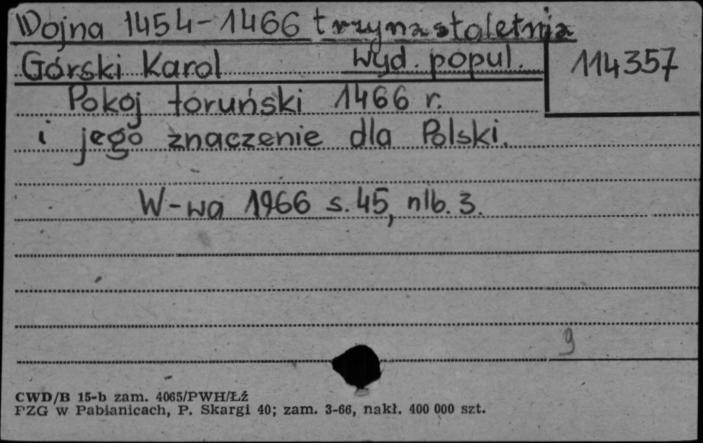 Wojna 1454-1466 trzynastoletnia
Górski Karol wyd. popul. 114357
Pokój toruński 1466 r.
i jego znaczenie dla Polski.
W-wa 1966 s. 45, nlb. 3.
9
CWD/B 15-b zam. 4065/PWH/Łź
PZG w Pabianicach, P. Skargi 40; zam. 3-66, nakł. 400 000 szt.